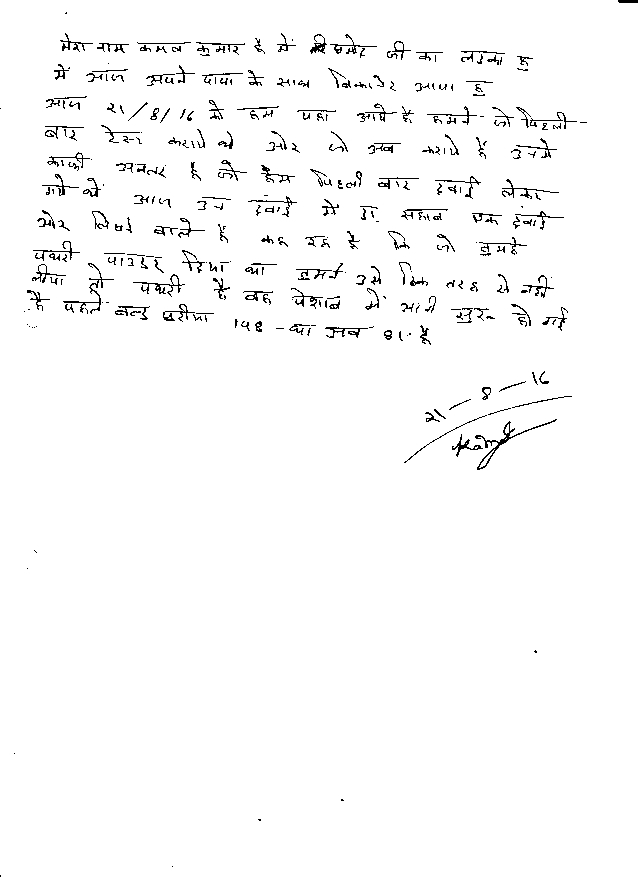 मेरा नाम कमल कुमार है में जी का लडका हु
में आज अपने पापा के साथ बिकानेर आया हु
आज 21/8/16 को हम यहा आये है हमने जो पिहली
बार टेस्ट कराये थे ओर जो अब कराये है उनमे
काफी अन्तर है जो हम पिहली बार दवाई लेकर
गये थे आज उन दवाई में डा. सहाब एक दवाई
ओर लिखने वाले है कह रहे है कि जो तुमहे
पथरी पाउडर दिया था तुमने उसे ठिक तरह से नही
लीया तो पथरी है वह पेशाब में आनी सुरू हो गई
है पहले बल्ड यूरीया 198 - था अब 81 है
21 - 8 - 16